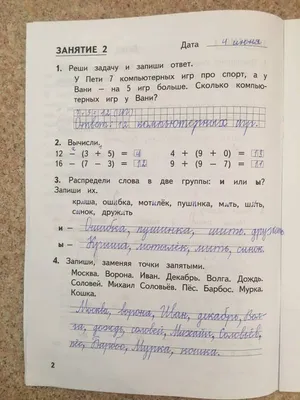 ЗАНЯТИЕ 2 Дата 4 июня
1. Реши задачу и запиши ответ.
У Пети 7 компьютерных игр про спорт, а у
Вани – на 5 игр больше. Сколько компью-
терных игр у Вани?
Ответ: 12 компьютерных игр.
2. Вычисли.
12 – (3 + 5) = 4 4 + (9 + 0) = 13
16 – (7 – 3) = 12 9 + (9 – 7) = 11
3. Распредели слова в две группы: и или ы?
Запиши их.
крыша, ошибка, мотылёк, пушинка, мыть, шить,
сынок, дружить
и – Ошибка, пушинка, шить, дружить
ы – Крыша, мотылёк, мыть, сынок.
4. Запиши, заменяя точки запятыми.
Москва. Ворона. Иван. Декабрь. Волга. Дождь.
Соловей. Михаил Соловьёв. Пёс. Барбос. Мурка.
Кошка.
Москва, ворона, Иван, декабрь, Вол-
га, дождь, соловей, Михаил Соловьёв,
пёс, Барбос, Мурка, кошка.
2